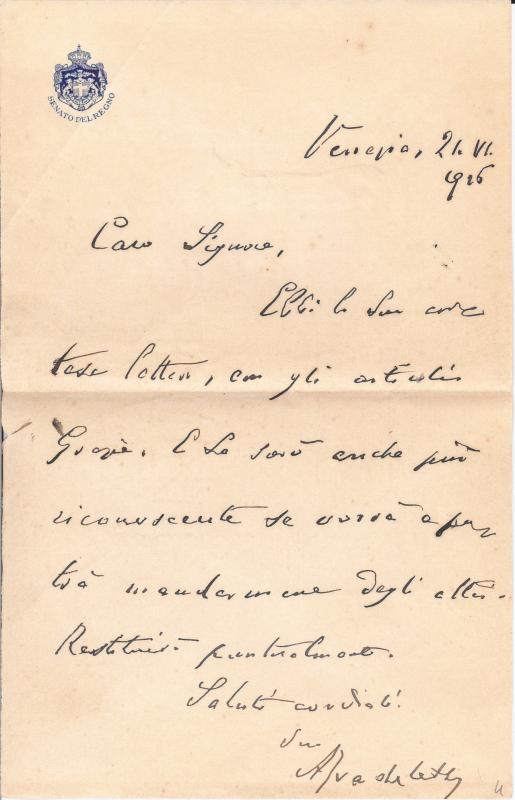 SENATO DEL REGNO
Venezia, 21. VI.
1926
Caro Signore,
Ebbi la Sua cor
tese lettera, con gli articoli.
Grazie. E Le sarò anche più
riconoscente se vorrà e po
trà mandarmene degli altri.
Restituirò puntualmente.
Saluti cordiali.
Suo